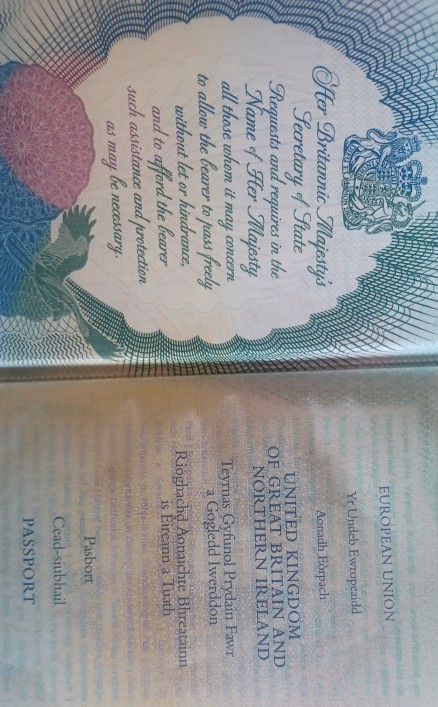 Her Britannic Majesty's
Secretary of State
Requests and requires in the
Name of Her Majesty
all those whom it may concern
to allow the bearer to pass freely
without let or hindrance,
and to afford the bearer
such assistance and protection
as may be necessary.
EUROPEAN UNION
Yr Undeb Ewropeaidd
Aonadh Eòrpach
UNITED KINGDOM
OF GREAT BRITAIN AND
NORTHERN IRELAND
Teyrnas Gyfunol Prydain Fawr
a Gogledd Iwerddon
Rìoghachd Aonaichte Bhreatainn
is Èireann a Tuath
Pasbort
Cead-siubhail
PASSPORT